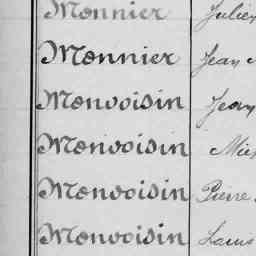 Monnier Julien
Monnier Jean
Monvoisin Jean
Monvoisin
Monvoisin Pierre
Monvoisin Louis